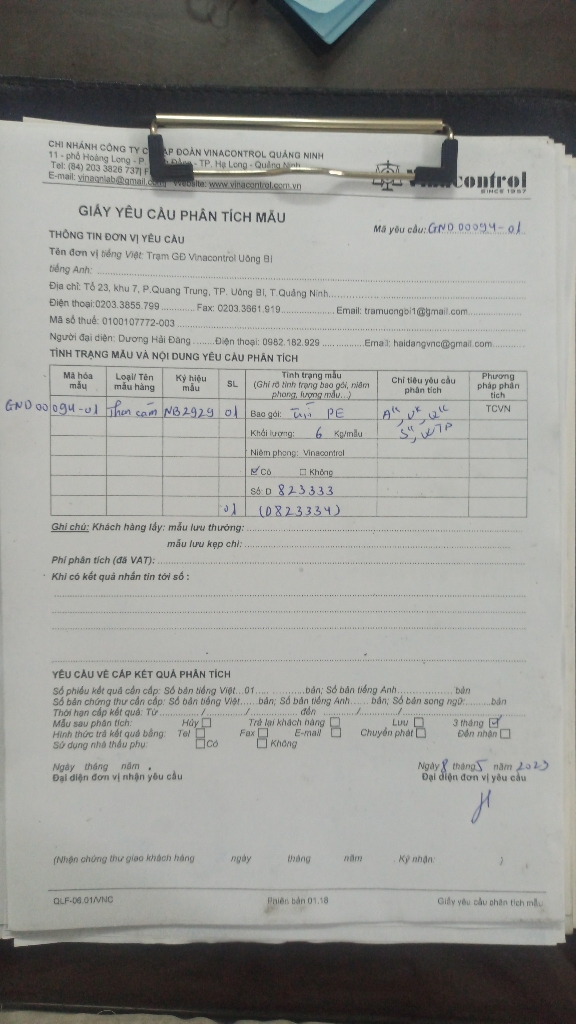 CHI NHÁNH CÔNG TY C ẬP ĐOÀN VINACONTROL QUẢNG NINH
11 - phố Hoàng Long - P. Đằng - TP. Hạ Long - Quảng Ninh
Tel: (84) 203 3826 737| F
E-mail: vinaqnlab@gmail.com Website: www.vinacontrol.com.vn
vinacontrol
SINCE 1957
GIẤY YÊU CẦU PHÂN TÍCH MẪU
Mã yêu cầu: GND 00094-01
THÔNG TIN ĐƠN VỊ YÊU CẦU
Tên đơn vị tiếng Việt: Trạm GĐ Vinacontrol Uông Bí
tiếng Anh:
Địa chỉ: Tổ 23, khu 7, P.Quang Trung, TP. Uông Bí, T.Quảng Ninh
Điện thoại:0203.3855.799 Fax: 0203.3661.919 Email: tramuongbi1@gmail.com
Mã số thuế: 0100107772-003
Người đại diện: Dương Hải Đăng Điện thoại: 0982.182.929 Email: haidangvnc@gmail.com
TÌNH TRẠNG MẪU VÀ NỘI DUNG YÊU CẦU PHÂN TÍCH
Mã hóa mẫu Loại/ Tên mẫu hàng Ký hiệu mẫu SL Tình trạng mẫu (Ghi rõ tình trạng bao gói, niêm phong, lượng mẫu...) Chỉ tiêu yêu cầu phân tích Phương pháp phân tích
GND 00094-01 Than cám NB2929 01 Bao gói: Túi PE Aᵏ, Vᵏ, Qᵏ TCVN
Khối lượng: 6 Kg/mẫu Sᵏ, WTP
Niêm phong: Vinacontrol
☑ Có ☐ Không
Số: D 823333
01 (D823334)
Ghi chú: Khách hàng lấy: mẫu lưu thường:
mẫu lưu kẹp chì:
Phí phân tích (đã VAT):
Khi có kết quả nhắn tin tới số :
YÊU CẦU VỀ CẤP KẾT QUẢ PHÂN TÍCH
Số phiếu kết quả cần cấp: Số bản tiếng Việt...01... bản; Số bản tiếng Anh... bản
Số bản chứng thư cần cấp: Số bản tiếng Việt... bản; Số bản tiếng Anh... bản; Số bản song ngữ:... bản
Thời hạn cấp kết quả: Từ ...../...../..... đến ...../...../.....
Mẫu sau phân tích: Hủy ☐ Trả lại khách hàng ☐ Lưu ☐ 3 tháng ☑
Hình thức trả kết quả bằng: Tel ☐ Fax ☐ E-mail ☐ Chuyển phát ☐ Đến nhận ☐
Sử dụng nhà thầu phụ: ☐ Có ☐ Không
Ngày tháng năm .
Đại diện đơn vị nhận yêu cầu
Ngày 8 tháng 5 năm 2023
Đại diện đơn vị yêu cầu
(Nhận chứng thư giao khách hàng ngày tháng năm . Ký nhận: )
QLF-06.01/VNC Phiên bản 01.18 Giấy yêu cầu phân tích mẫu